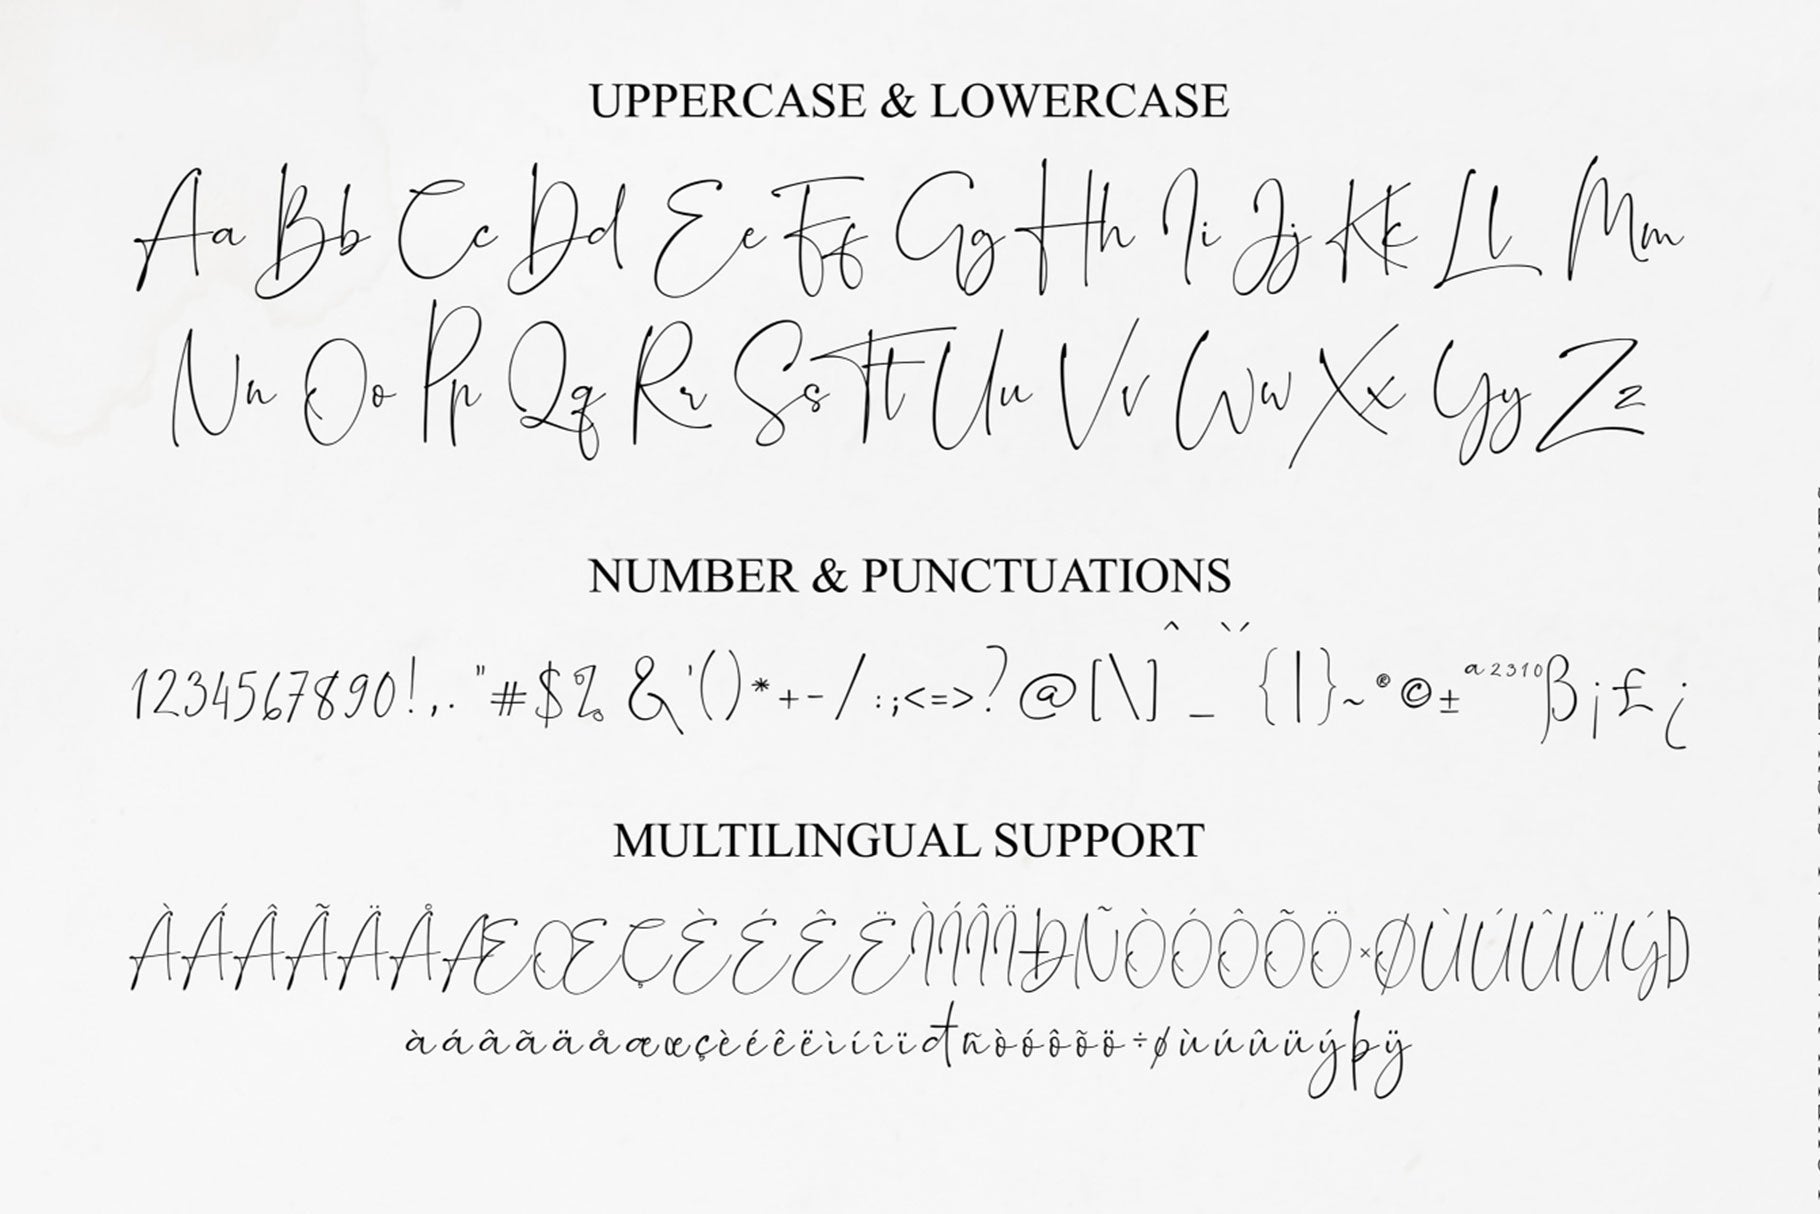 UPPERCASE & LOWERCASE
Aa Bb Cc Dd Ee Ff Gg Hh Ii Jj Kk Ll Mm
Nn Oo Pp Qq Rr Ss Tt Uu Vv Ww Xx Yy Zz
NUMBER & PUNCTUATIONS
1234567890!,. "#$% & '()*+-/ :;<=>?@[\] ^ _ ` ´ {|}~®©±ª²³¹ºβ¡£¿
MULTILINGUAL SUPPORT
ÀÁÂÃÄÅÆŒÇÈÉÊËÌÍÎÏÐÑÒÓÔÕÖ×ØÙÚÛÜÝD
àáâãäåæœçèéêëìíîïđñòóôõö÷øùúûüýþÿ